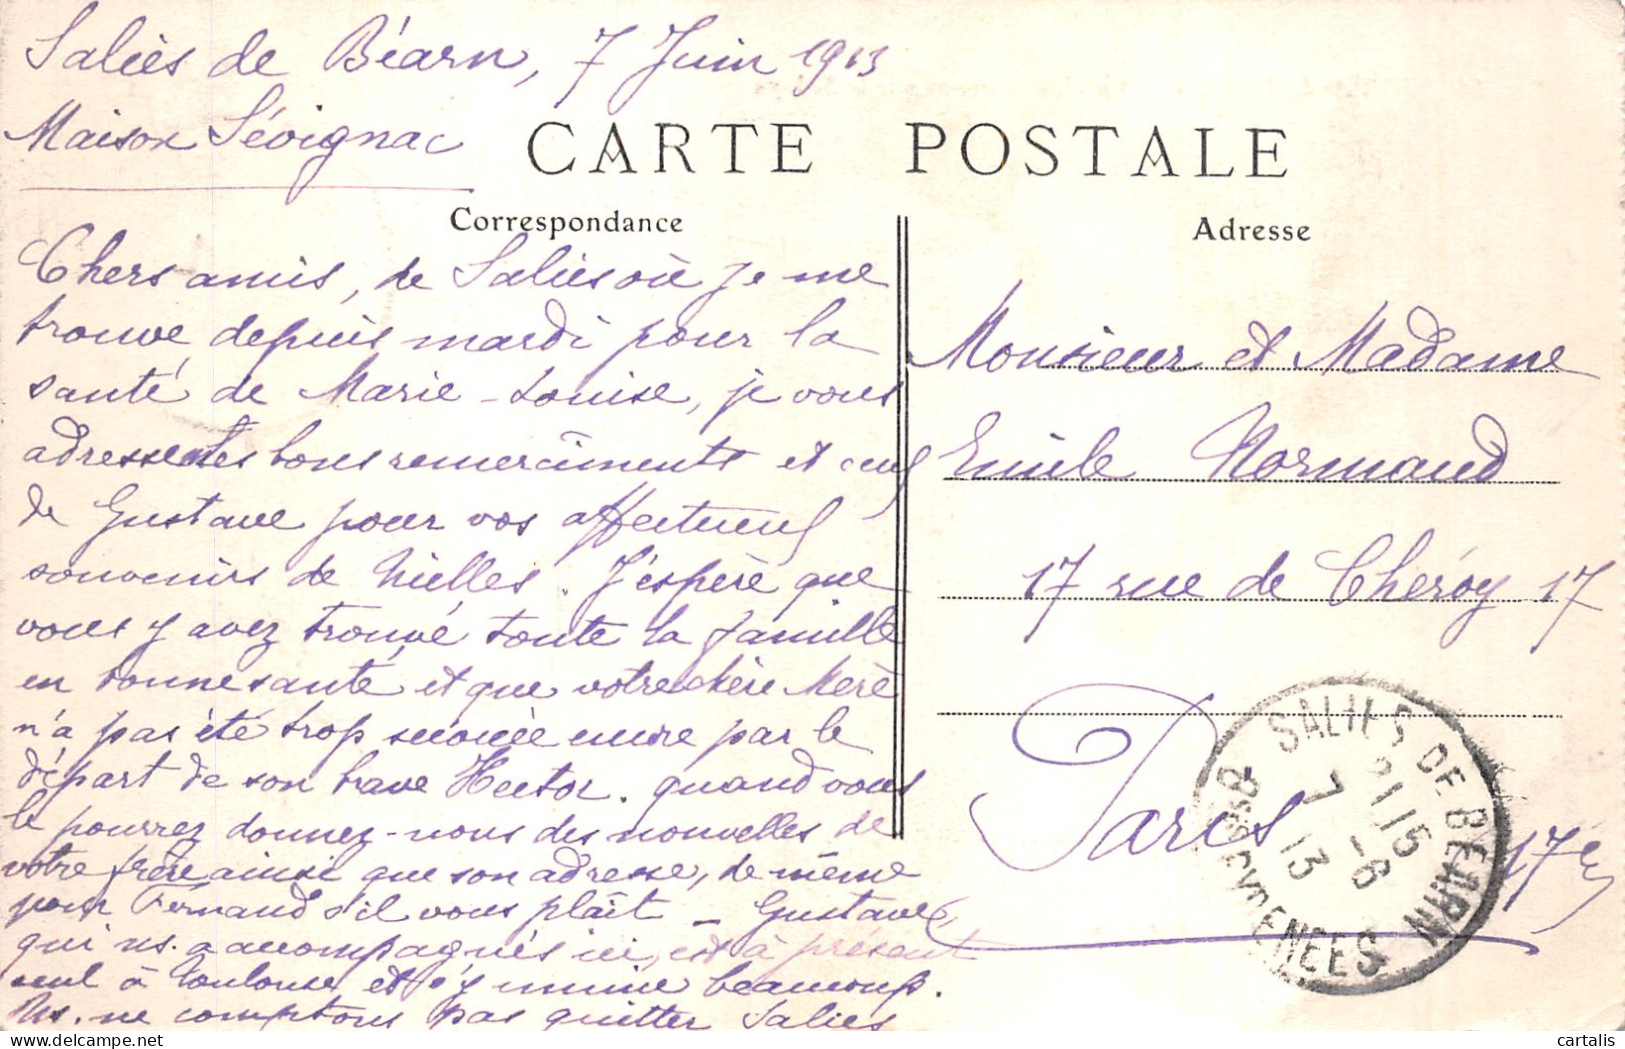 Salies de Béarn, 7 Juin 1913
Maison Sévignac
CARTE POSTALE
Correspondance
Chers amis, de Salies où je me
trouve depuis mardi pour la
santé de Marie-Louise, je vous
adresse mes bons remerciments et ceux
de Gustave pour vos affectueux
souvenirs de Nielles. J'espère que
vous y avez trouvé toute la famille
en bonne santé et que votre chère Mère
n'a pas été trop secouée encore par le
départ de son brave Hector. quand vous
le pourrez donnez-nous des nouvelles de
votre frère ainsi que son adresse, de même
pour Fernand s'il vous plaît - Gustave
qui ns. a accompagnés ici, est à présent
seul à Toulouse et s'y ennuie beaucoup.
Ns. ne comptons pas quitter Salies
Adresse
Monsieur et Madame
Emile Normand
17 rue de Chéroy 17
Paris
17e
SALIES DE BEARN
21 15
7 - 6
13
BSES PYRENEES
cartalis